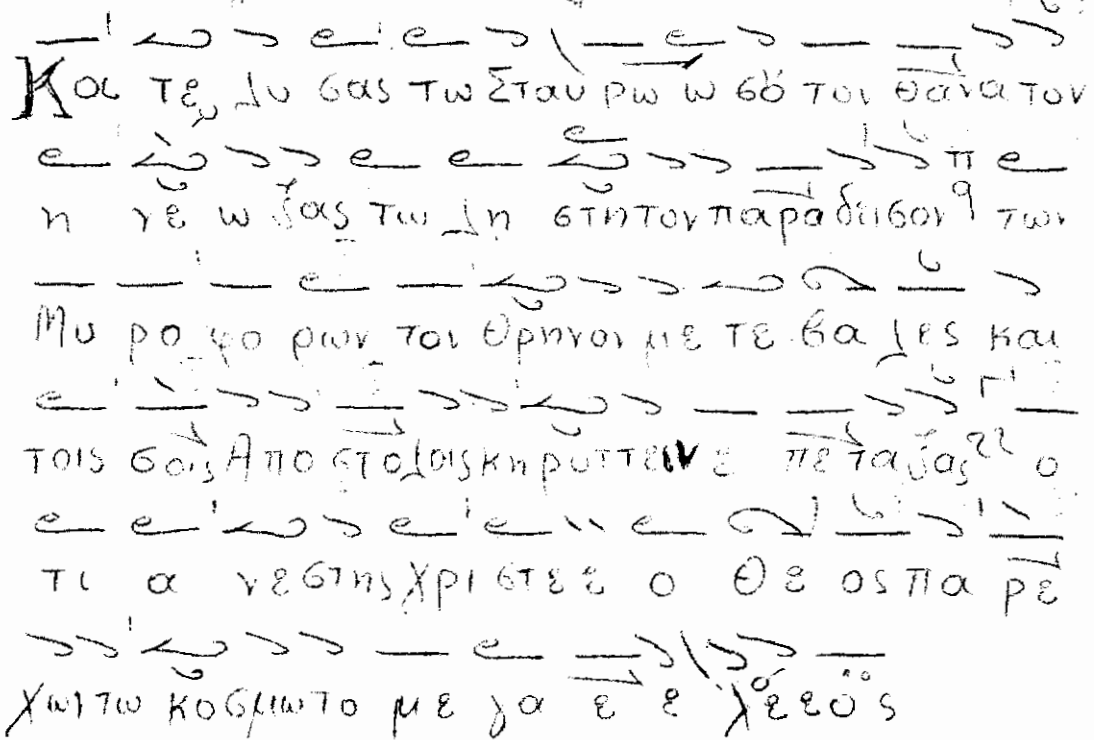 Κα τε λυ σας τω Σταυ ρω ω σό τον θάνα τον
η νέ ω ξας τω λη στη τον παρά δεισον των
Μυ ρο φο ρων τον θρηνον με τε βα λες και
τοις σοις Απο στο λοις κη ρύττειν ε πε τα ξας ο
τι α νεστης Χρι στε ε ο Θε ος πα ρε
χων τω κόσμω το με γα ε ε λέ ε ο ς